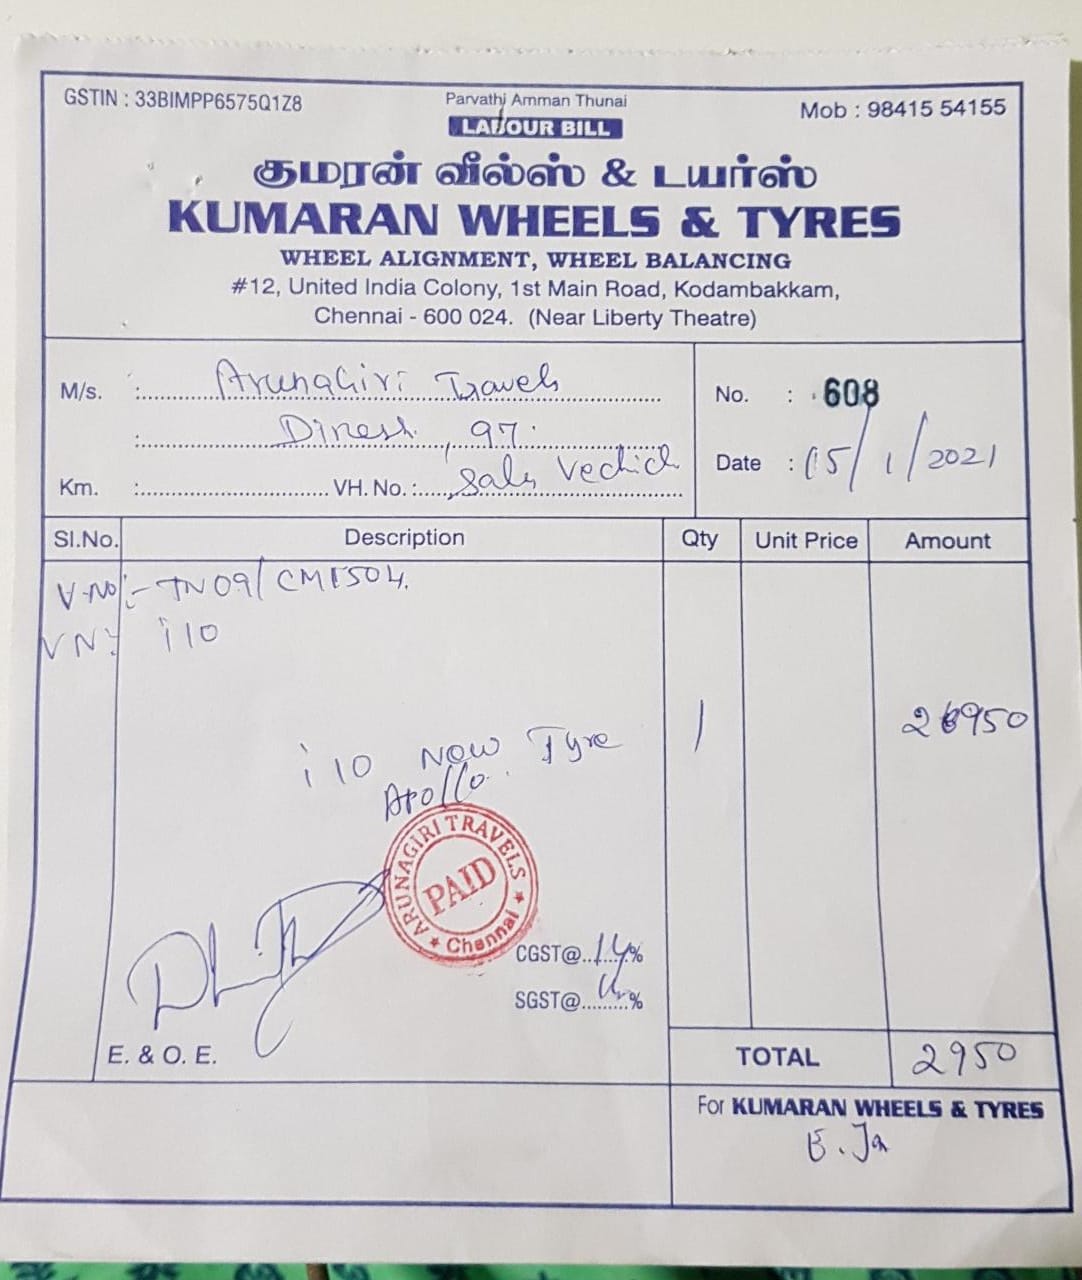 GSTIN : 33BIMPP6575Q1Z8
Parvathi Amman Thunai
Mob : 98415 54155
LABOUR BILL
குமரன் வீல்ஸ் & டயர்ஸ்
KUMARAN WHEELS & TYRES
WHEEL ALIGNMENT, WHEEL BALANCING
#12, United India Colony, 1st Main Road, Kodambakkam,
Chennai - 600 024. (Near Liberty Theatre)
M/s. : Arunagiri Travels
No. : 608
: Dinesh, 97.
Date : 05/1/2021
Km. : VH. No. : Sals Vechicl
Sl.No. Description Qty Unit Price Amount
V-No:- TN09/CM1504.
VN: i10
i10 New Tyre 1
Apollo.
ARUNAGIRI TRAVELS
PAID
★ Chennai ★
CGST@..14..%
SGST@.........%
E. & O. E.
TOTAL 2950
For KUMARAN WHEELS & TYRES